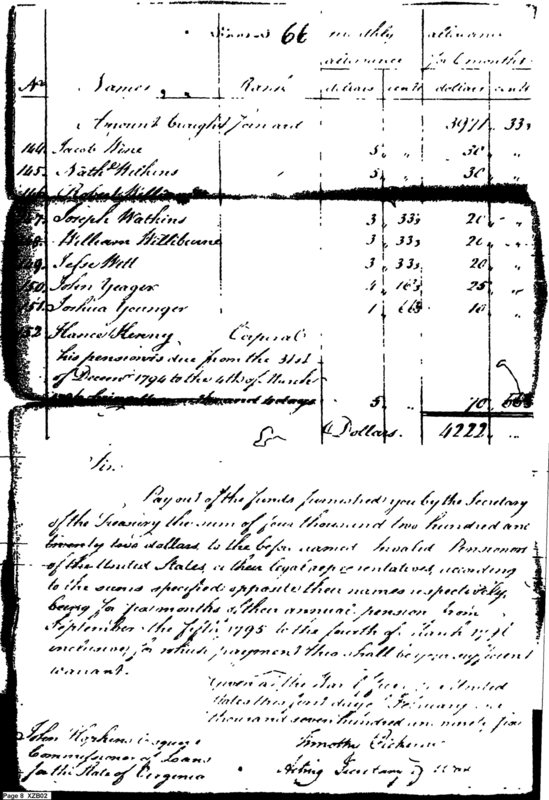 66 monthly allowance
allowance for 6 months
No. Names Rank dollars cents dollars cents
Amount brought forward 3971 33⅓
144. Jacob Wine 5 " 30 "
145. Nathl. Wilkins 5 " 30 "
146. Robert
147. Joseph Watkins 3 33⅓ 20 "
148. William Withburne 3 33⅓ 20 "
149. Jesse Witt 3 33⅓ 20 "
150. John Yeager 4 16⅔ 25 "
151. Joshua Younger 1 66⅔ 10 "
152 Henry, Corporal
his pension is due from the 31st
of Decemr. 1794 to the 4th of March
and 4 days 5 " 70
Dollars. 4222 "
Sir.
Pay out of the funds furnished you by the Secretary
of the Treasury the sum of four thousand two hundred and
twenty two dollars, to the before named Invalid Pensioners
of the United States, or their legal representatives, according
to the sums specified opposite their names respectively,
being for months of their annual pension from
September the fifth 1795 to the fourth of March
inclusive, for which payment this shall be your sufficient
warrant.
Given at the War Office United
States this first day of February one
thousand seven hundred and ninety
John Hopkins Esquire
Commissioner of Loans
for the State of Virginia
Timothy
Acting Secretary of War
Page 8 XZB02